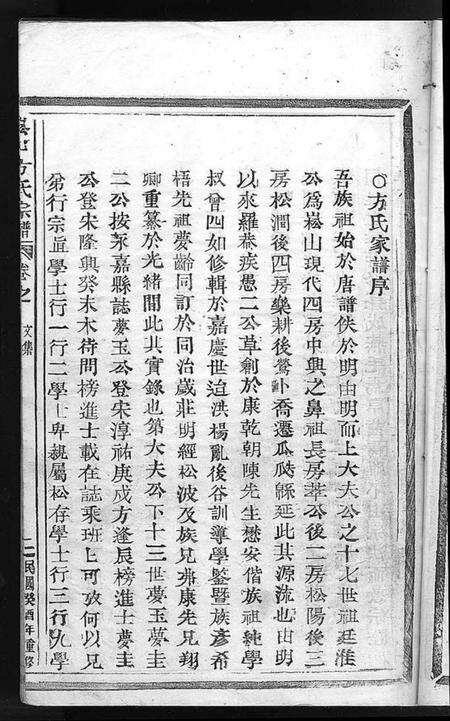 ○方氏家譜序
吾族祖始於唐譜佚於明由明而上大夫公之十七世祖廷淮
公爲崧山現代四房中興之鼻祖長房莘公後二房松陽後三
房松澗後四房樂耕後鶯卟喬遷瓜瓞緜延此其源流也由明
以來羅恭疾愚二公草創於康乾朝陳先生懋安偕族祖純學
叔曾四如修輯於嘉慶世迫洪楊亂後谷訓導學鑒暨族彥希
梧先祖夢齡同訂於同治歲莊明經松波及族兄弗康先兄翔
卿重纂於光緒間此其實錄也第大夫公下十三世夢玉夢圭
二公按永嘉縣誌夢玉公登宋淳祐庚戍方逢辰榜進士夢圭
公登宋隆興癸未木待問榜進士載在誌乘班上可攷何以兄
弟行宗直學士行一行二學士卑親屬松存學士行三行九學
方氏宗譜
卷之
文集
二
民國癸酉年重修